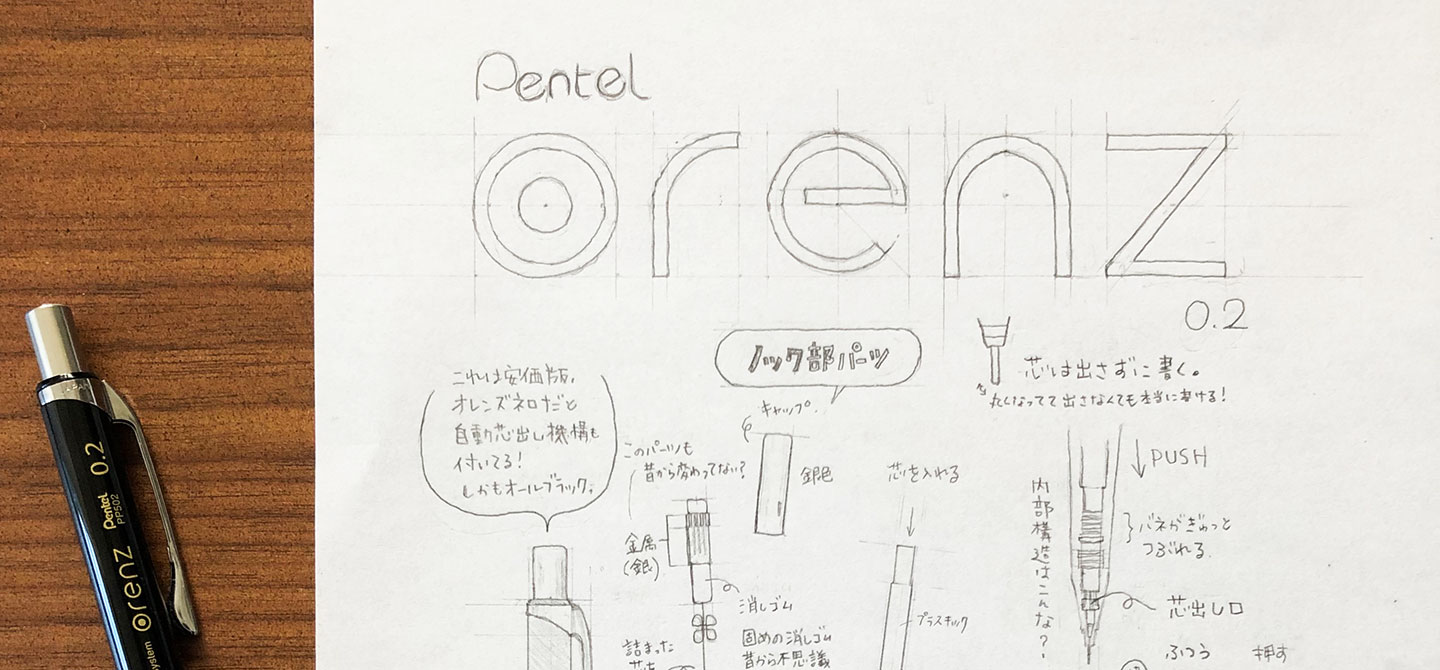 Pentel
orenz
0.2
ノック部パーツ
芯は出さずに書く。
丸くなってて出さなくても本当に書ける!
これは安価版、
オレンズネロだと
自動芯出し機構も
付いてる!
しかもオールブラック。
このパーツも
昔から変わってない?
キャップ。
銀色
芯を入れる
PUSH
内部構造はこんな?
バネがぎゅっと
つぶれる。
金属
(銀)
消しゴム
プラスチック
芯出し口
詰まった
芯を
固めの消しゴム
昔から不思議
ふつう
押す
0.2
Pentel
PP502
orenz
system
JAPAN